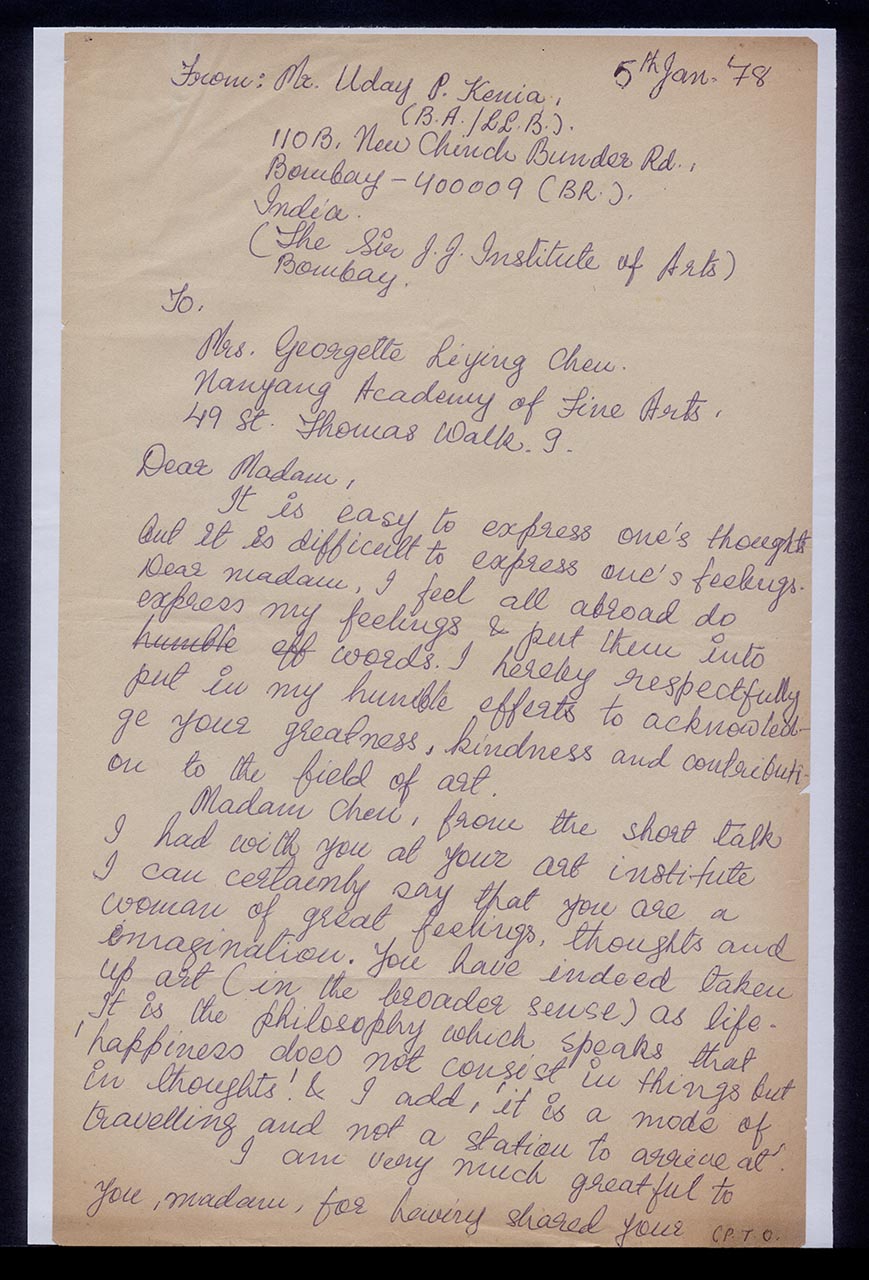 5th Jan. '78
From: Mr. Uday P. Kenia,
(B.A./LL.B.).
110B, New Chinch Bunder Rd.,
Bombay - 400009 (BR.).
India.
(The Sir J.J. Institute of Arts)
Bombay.
To,
Mrs. Georgette Liying Chen.
Nanyang Academy of Fine Arts,
49 St. Thomas Walk. 9.
Dear Madam,
It is easy to express one's thoughts
but it is difficult to express one's feelings.
Dear madam, I feel all abroad do
express my feelings & put them into
humble eff words. I hereby respectfully
put in my humble efforts to acknowled-
ge your greatness, kindness and contributi-
on to the field of art.
Madam Chen, from the short talk
I had with you at your art institute
I can certainly say that you are a
woman of great feelings, thoughts and
imagination. You have indeed taken
up art (in the broader sense) as life.
It is the philosophy which speaks that
'happiness does not consist in things but
in thoughts' & I add, 'it is a mode of
travelling and not a station to arrive at'.
I am very much greatful to
you, madam, for having shared your
(P.T.O.